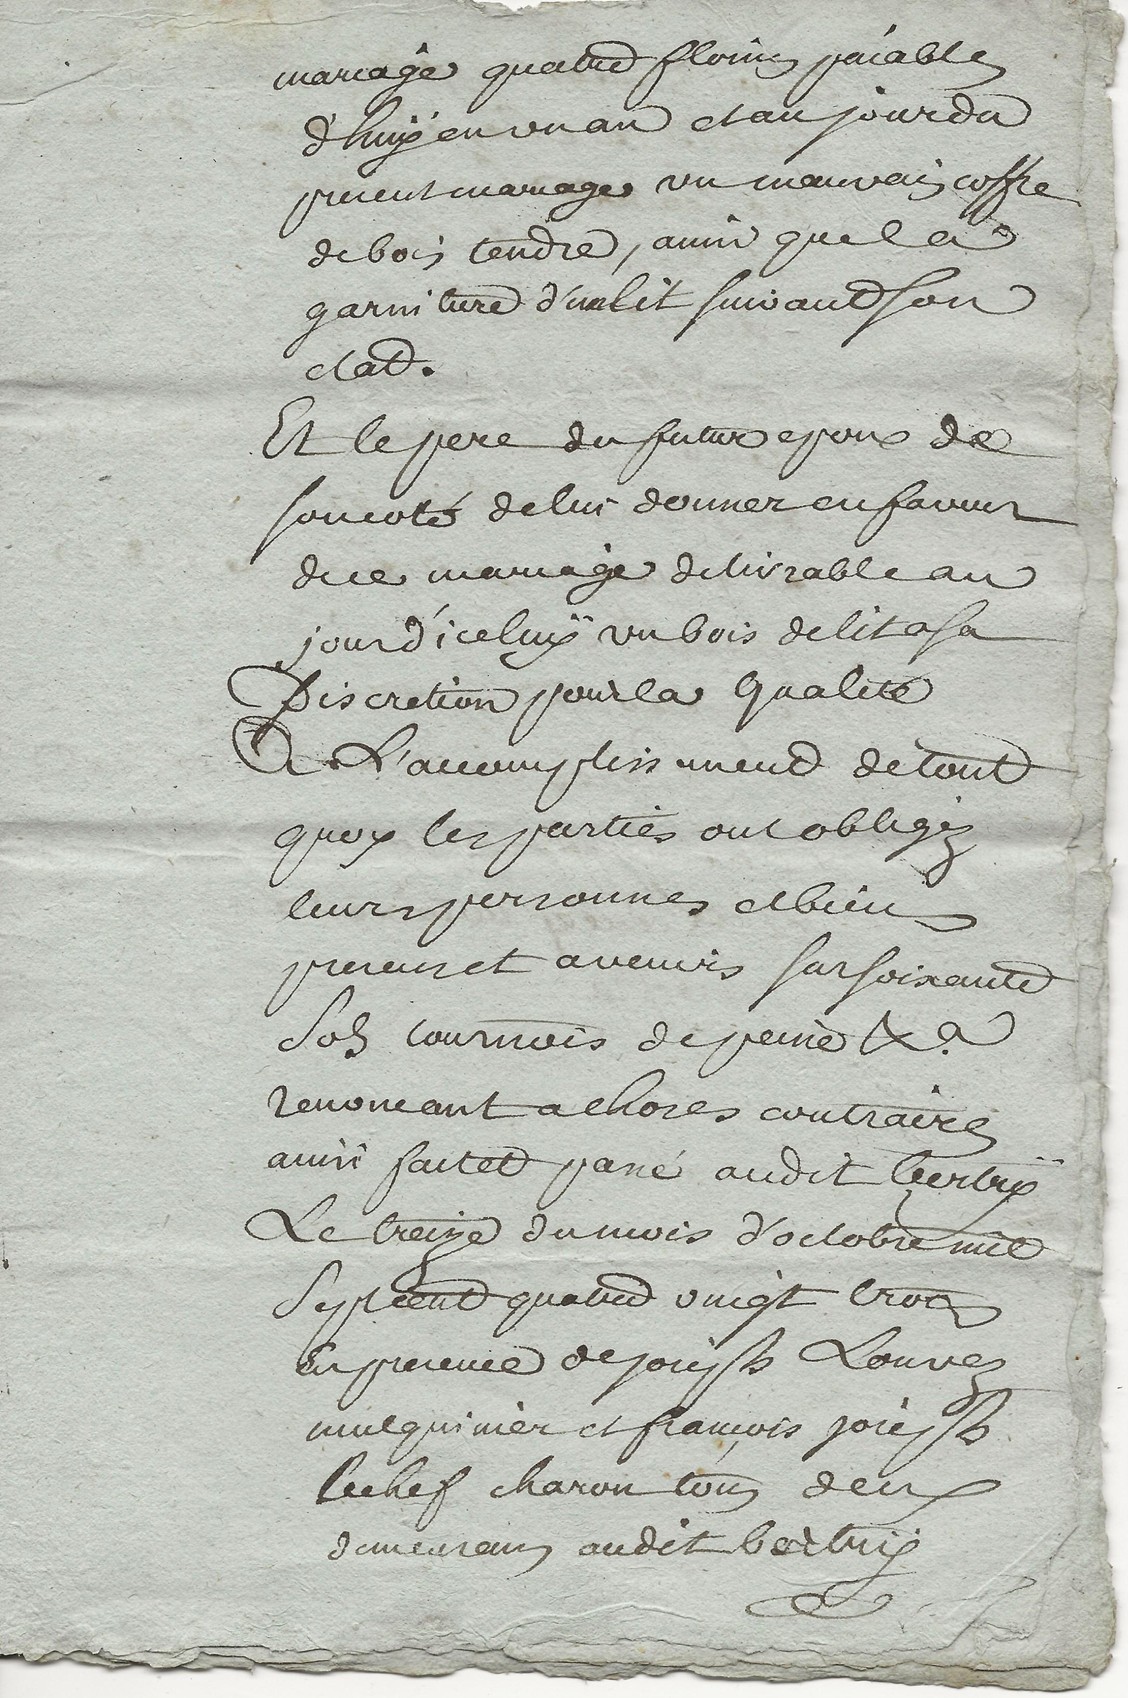 mariage quatre florins paiables
d'huÿ en un an et au jour du
present mariage un mauvais coffre
de bois tendre, ainsi que la
garniture d'un lit suivant son
etat.
Et le pere du futur epoux de
son coté de lui donner en faveur
de ce mariage delivrable au
jour d'iceluÿ un bois de lit a sa
Discretion pour la qualité
A L'accomplissement de tout
quoy les parties ont obligéz
leurs personnes et biens
presens et avenirs sur soixante
Sols tournois de peine &a
renoncant a choses contraires
ainsi fait et passé audit bertrÿ
Le treize du mois d'octobre mil
Sept cent quatre vingt trois
En presence de joseph Louvez
mulquinier et françois joseph
Lechef charon tous deux
demeurans audit bertrÿ